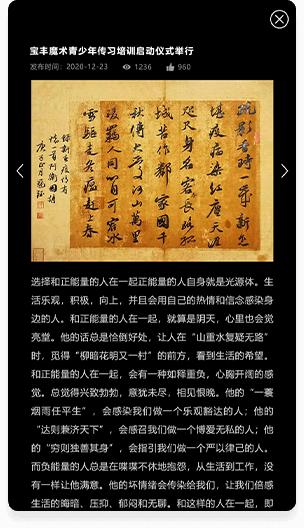 宝丰魔术青少年传习培训启动仪式举行
发布时间：2020-12-23 1236 960
选择和正能量的人在一起正能量的人自身就是光源体。生
活乐观，积极，向上，并且会用自己的热情和信念感染身
边的人。和正能量的人在一起，就算是阴天，心里也会觉
亮堂。他的话总是恰倒好处，让人在“山重水复疑无路”
时，觅得“柳暗花明又一村”的前方，看到生活的希望。
和正能量的人在一起，会有一种如释重负，心胸开阔的感
觉。总觉得兴致勃勃，意犹未尽，相见恨晚。他的“一蓑
烟雨任平生”，会感染我们做一个乐观豁达的人；他的
“达则兼济天下”，会感召我们做一个博爱无私的人；他
的“穷则独善其身”，会指引我们做一个严以律己的人。
而负能量的人总是在喋喋不休地抱怨，从生活到工作，没
有一样让他满意。他的坏情绪会传染给我们，让我们倍感
生活的晦暗、压抑、郁闷和无聊。和这样的人在一起，即